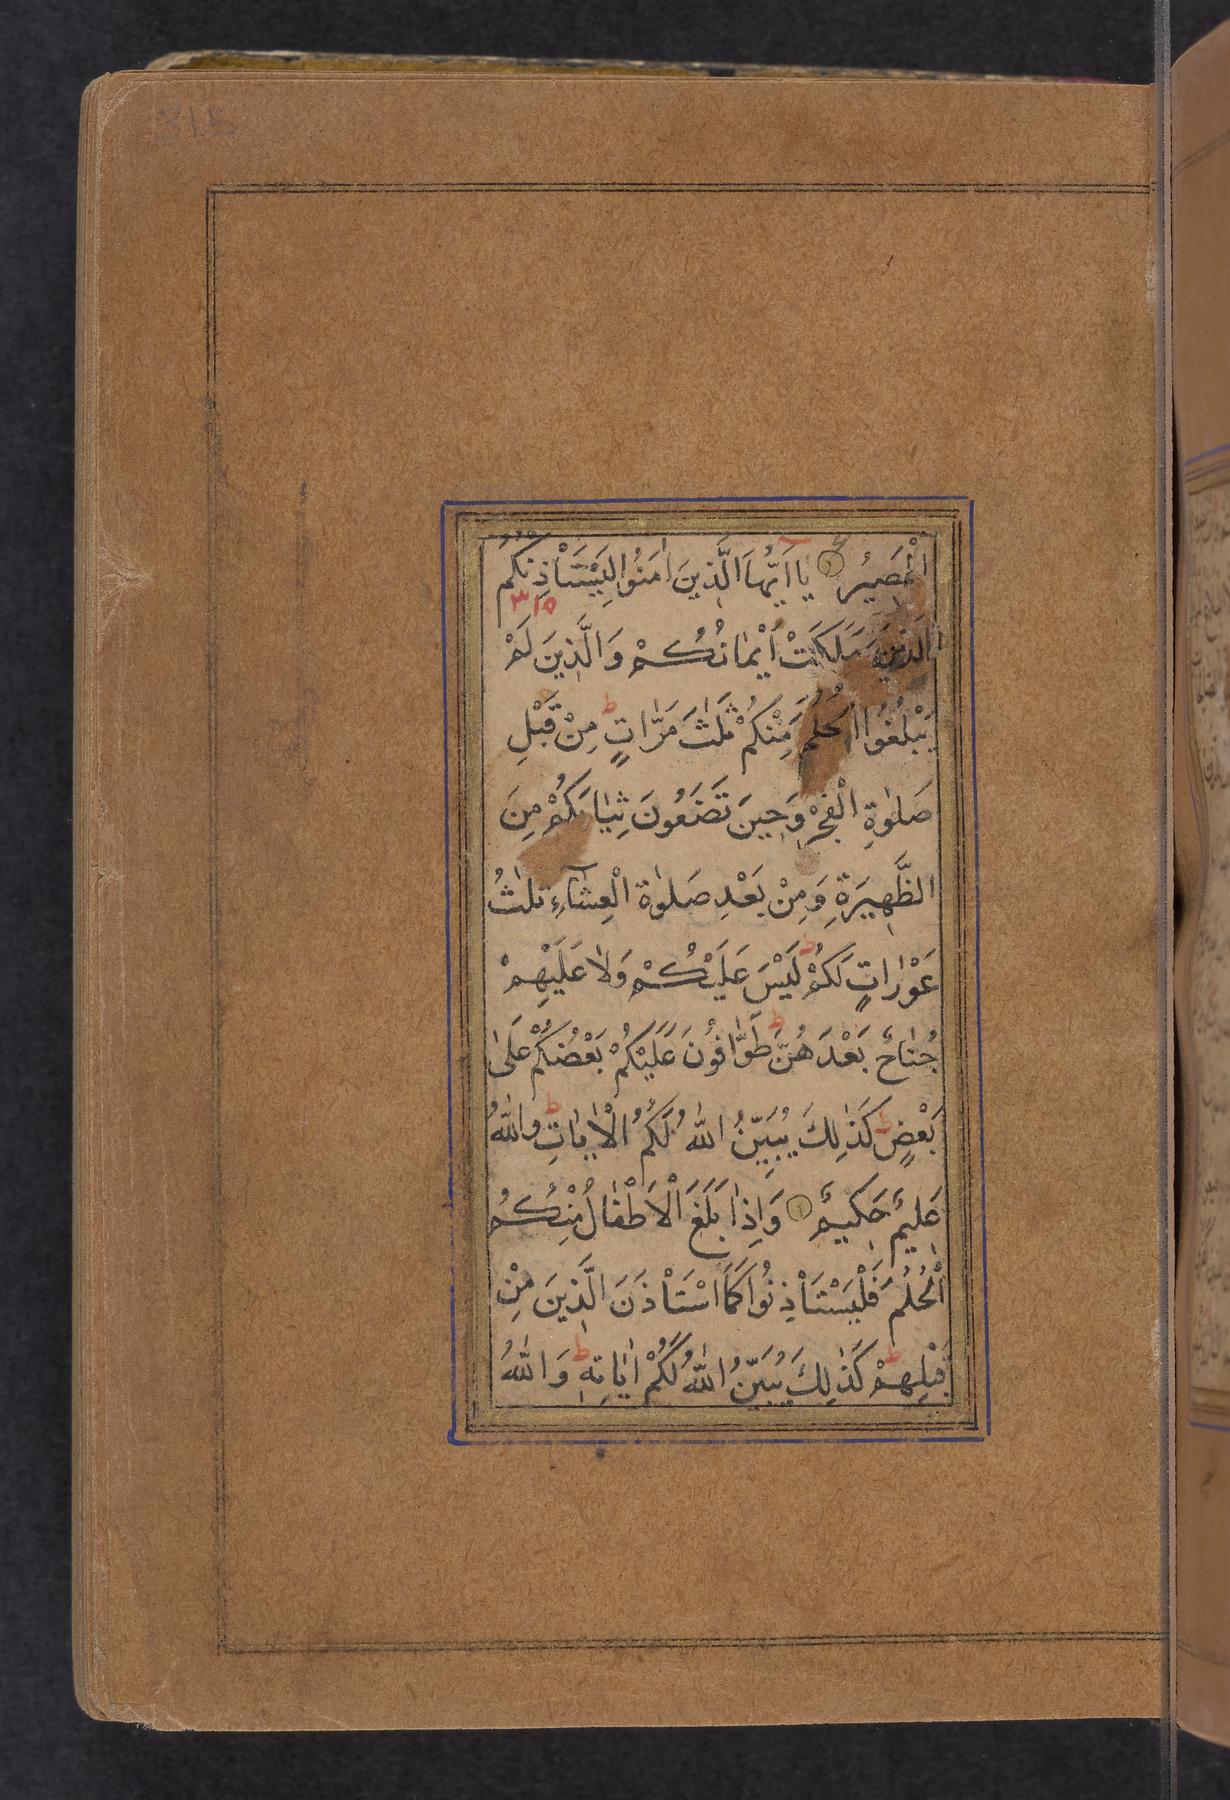 315
الْمَصِيرُ يَا اَيُّهَا الَّذِينَ اٰمَنُوا لِيَسْتَأْذِنْكُمُ
٣١٥
الَّذِينَ مَلَكَتْ اَيْمٰانُكُمْ وَالَّذِينَ لَمْ
يَبْلُغُوا الْحُلُمَ مِنْكُمْ ثَلٰثَ مَرّٰاتٍ ط مِنْ قَبْلِ
صَلوٰةِ الْفَجْرِ وَحِينَ تَضَعُونَ ثِيٰابَكُمْ مِنَ
الظَّهِيرَةِ وَمِنْ بَعْدِ صَلوٰةِ الْعِشٰآءِ ثَلٰثُ
عَوْرٰاتٍ لَكُمْ ط لَيْسَ عَلَيْكُمْ وَلٰا عَلَيْهِمْ
جُنٰاحٌ بَعْدَهُنَّ ط طَوّٰافُونَ عَلَيْكُمْ بَعْضُكُمْ عَلىٰ
بَعْضٍ ط كَذٰلِكَ يُبَيِّنُ اللّٰهُ لَكُمُ الْاٰيٰاتِ ط وَاللّٰهُ
عَلِيمٌ حَكِيمٌ وَاِذٰا بَلَغَ الْاَطْفٰالُ مِنْكُمُ
الْحُلُمَ فَلْيَسْتَأْذِنُوا كَمَا اسْتَأْذَنَ الَّذِينَ مِنْ
قَبْلِهِمْ ط كَذٰلِكَ يُبَيِّنُ اللّٰهُ لَكُمْ اٰيٰاتِهِ ط وَاللّٰهُ